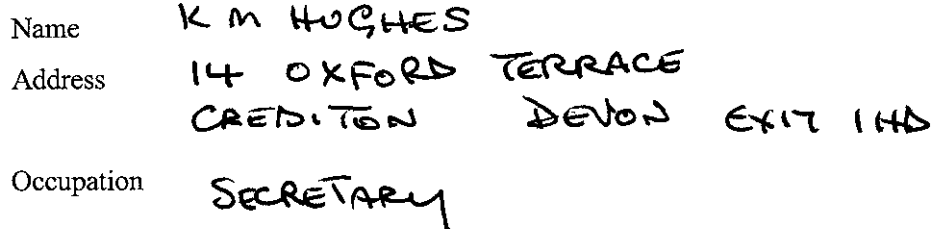 Name K M HUGHES
Address 14 OXFORD TERRACE
CREDITON DEVON EX17 1HD
Occupation SECRETARY